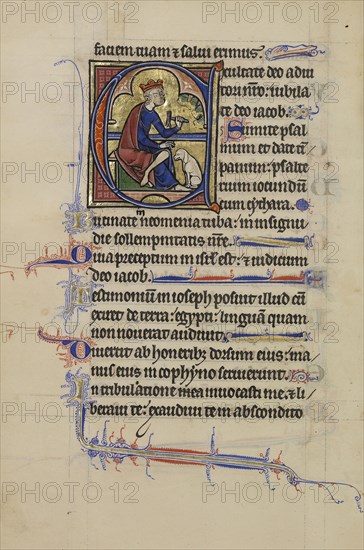 faciem tuam & salui erimus.
Exultate deo adiu
tori nr̃o: iubila
te deo iacob.
Sumite psal
mum et date tỹ
panum: psalte
rium iocundũ
cum cythara.
Bucinate in neomenia tuba: in insigni
die sollempnitatis ñre.
Quia preceptum in isrl est: & iudicium
deo iacob.
Testimoniũ in ioseph posuit illud cũ
exiret de terra egypti: linguam quam
non nouerat audiuit.
Diuertit ab honeribz dorsum eius: ma
nus eius in cophyno seruierunt.
In tribulatione mea inuocasti me & li
beraui te: exaudiui te in abscondito